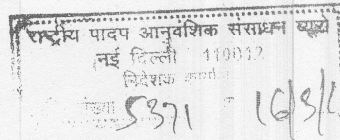 राष्ट्रीय पादप आनुवंशिक संसाधन ब्यूरो
नई दिल्ली 110012
निदेशक कार्यालय
संख्या 5371